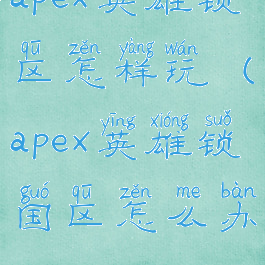 apex英雄锁
qū zěn yàng wán
区怎样玩(
yīng xióng suǒ
apex英雄锁
guó qū zěn me bàn
国区怎么办